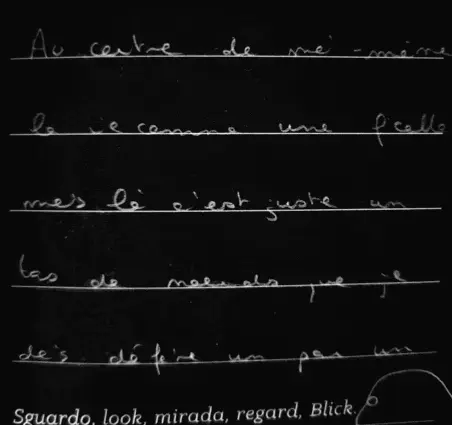 Au centre de moi-même
comme une ficelle
mais là c'est juste un
tas de noeuds que je
dois défaire un par un
Sguardo, look, mirada, regard, Blick.